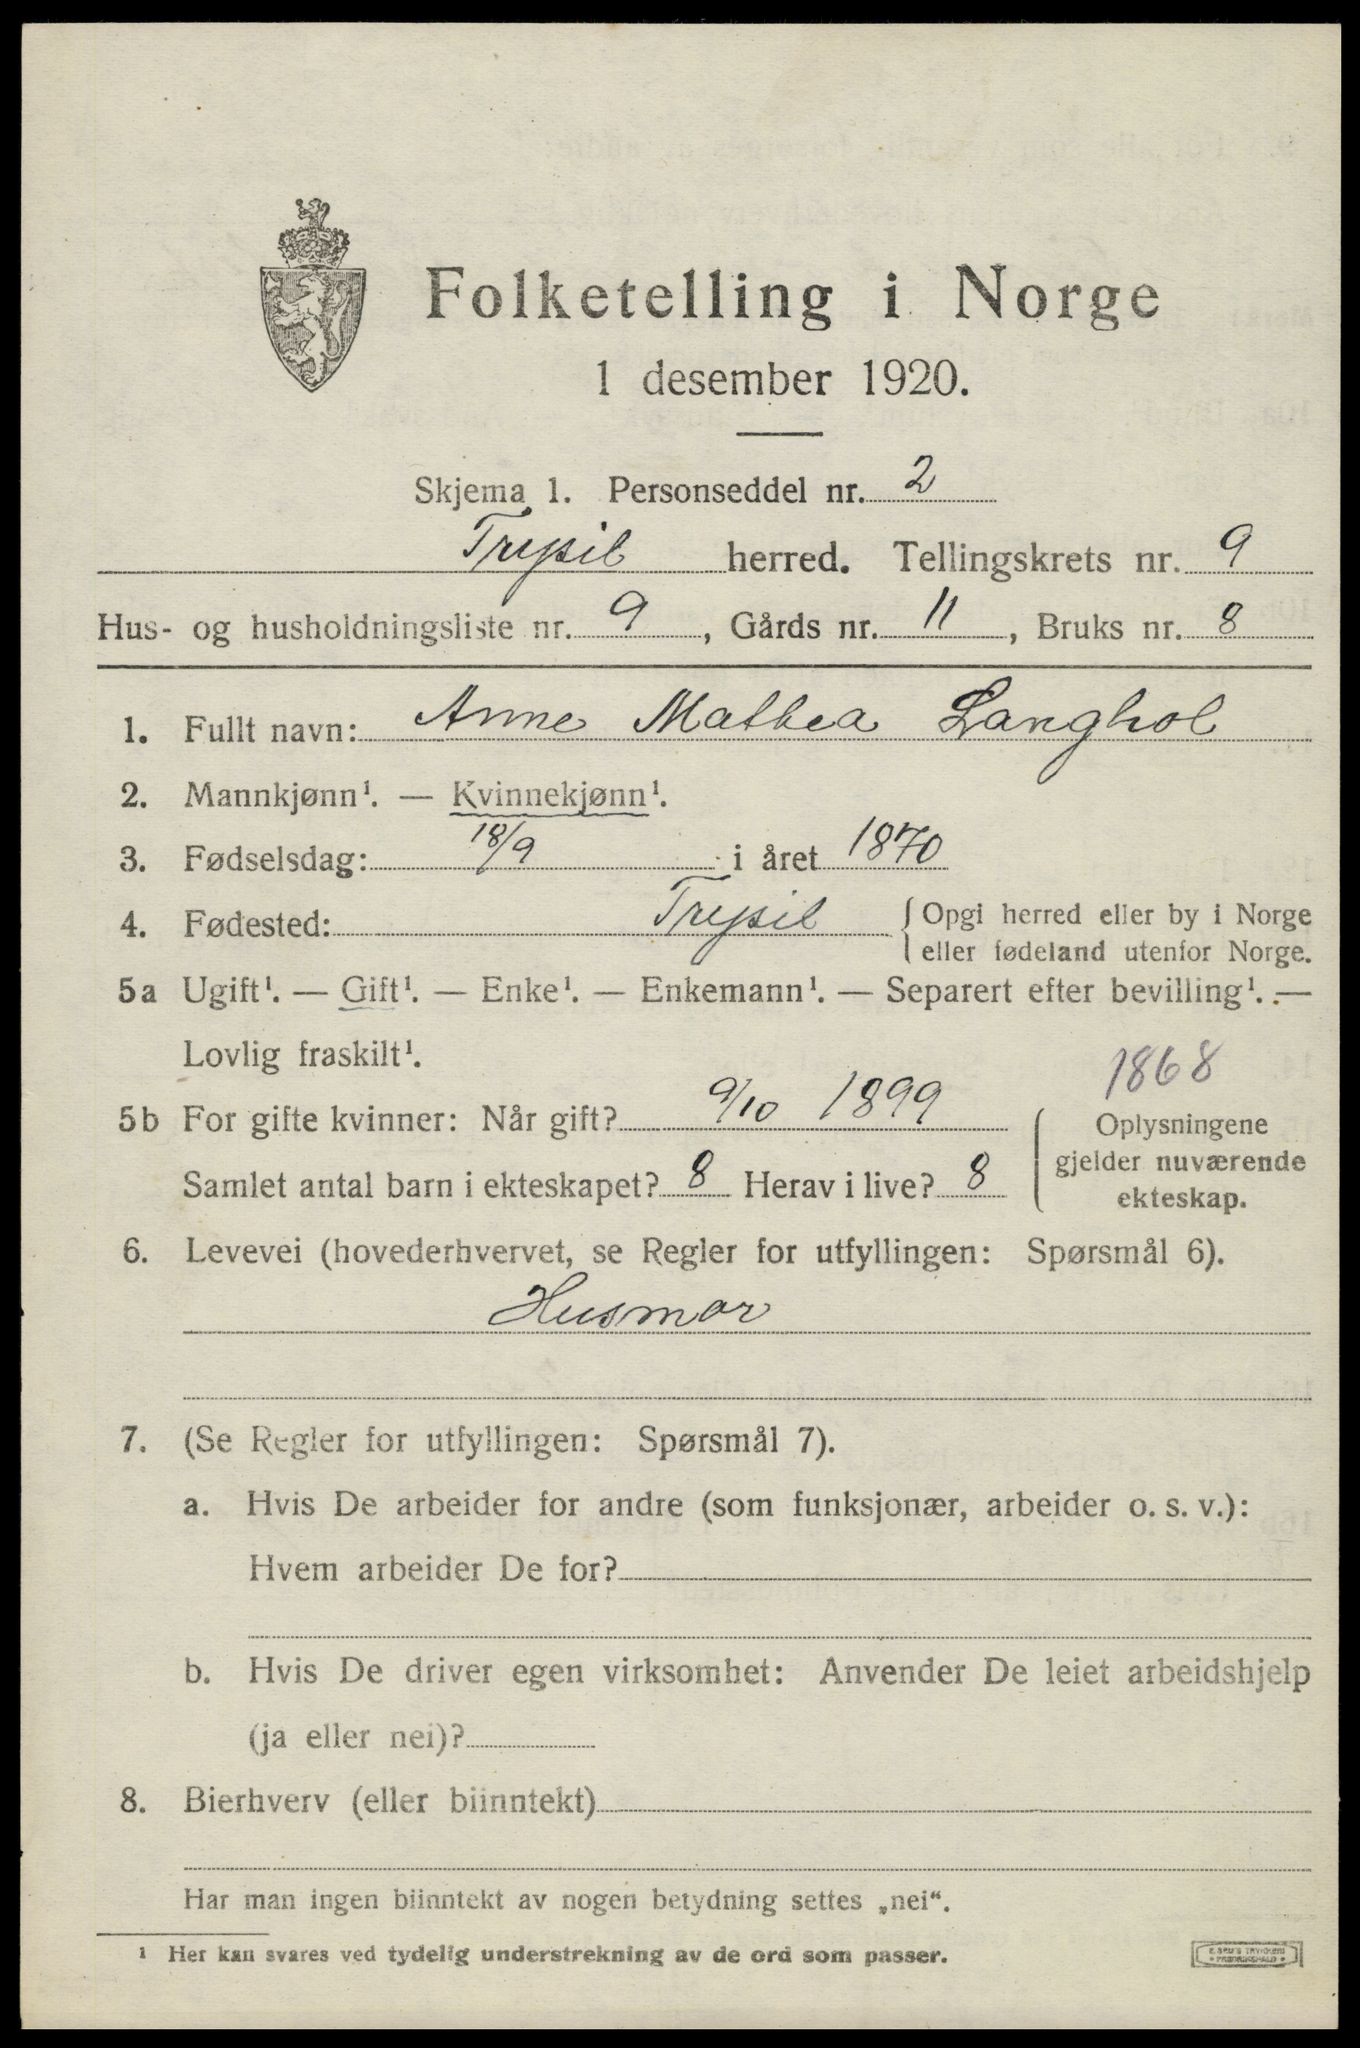 Folketelling i Norge
1 desember 1920.
Skjema 1. Personseddel nr. 2
Trysil herred. Tellingskrets nr. 9
Hus- og husholdningsliste nr. 9, Gårds nr. 11, Bruks nr. 8
1. Fullt navn: Anne Mathea Langhol
2. Mannkjønn¹. — Kvinnekjønn¹.
3. Fødselsdag: 18/9 i året 1870
4. Fødested: Trysil { Opgi herred eller by i Norge
eller fødeland utenfor Norge.
5a Ugift¹. — Gift¹. — Enke¹. — Enkemann¹. — Separert efter bevilling¹. —
Lovlig fraskilt¹.
1868
5b For gifte kvinner: Når gift? 9/10 1899 ( Oplysningene
gjelder nuværende
Samlet antal barn i ekteskapet? 8 Herav i live? 8
ekteskap.
6. Levevei (hovederhvervet, se Regler for utfyllingen: Spørsmål 6).
Husmor
7. (Se Regler for utfyllingen: Spørsmål 7).
a. Hvis De arbeider for andre (som funksjonær, arbeider o. s. v.):
Hvem arbeider De for?
b. Hvis De driver egen virksomhet: Anvender De leiet arbeidshjelp
(ja eller nei)?
8. Bierhverv (eller biinntekt)
Har man ingen biinntekt av nogen betydning settes „nei“.
¹ Her kan svares ved tydelig understrekning av de ord som passer.